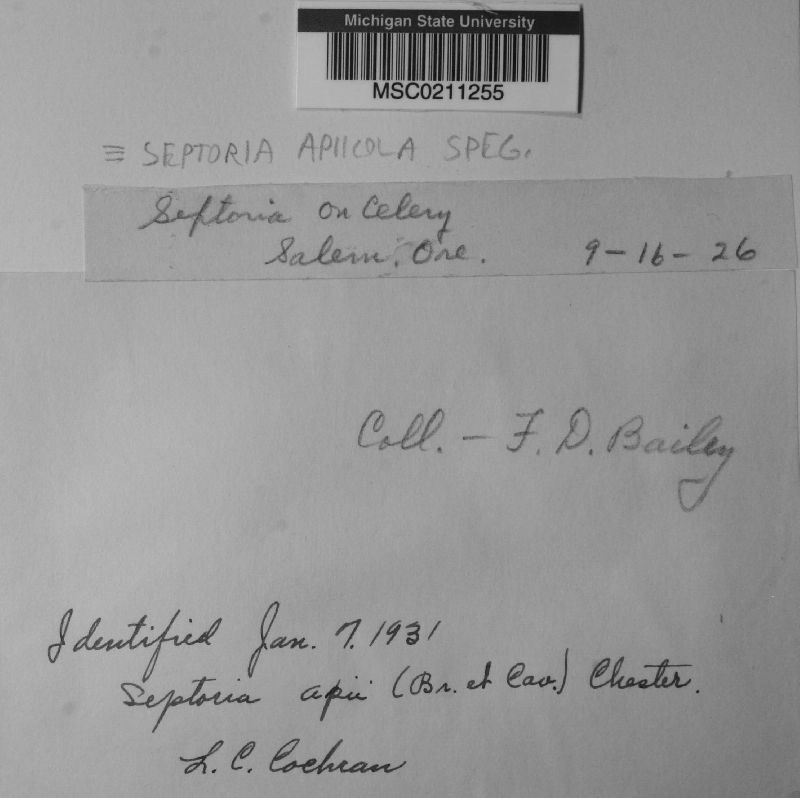 Michigan State University
MSC0211255
≡ SEPTORIA APIICOLA SPEG.
Septoria on Celery
Salem, Ore. 9-16-26
Coll. - F. D. Bailey
Identified Jan. 7. 1931
Septoria apii (Br. et Cav.) Chester.
L. C. Cochran